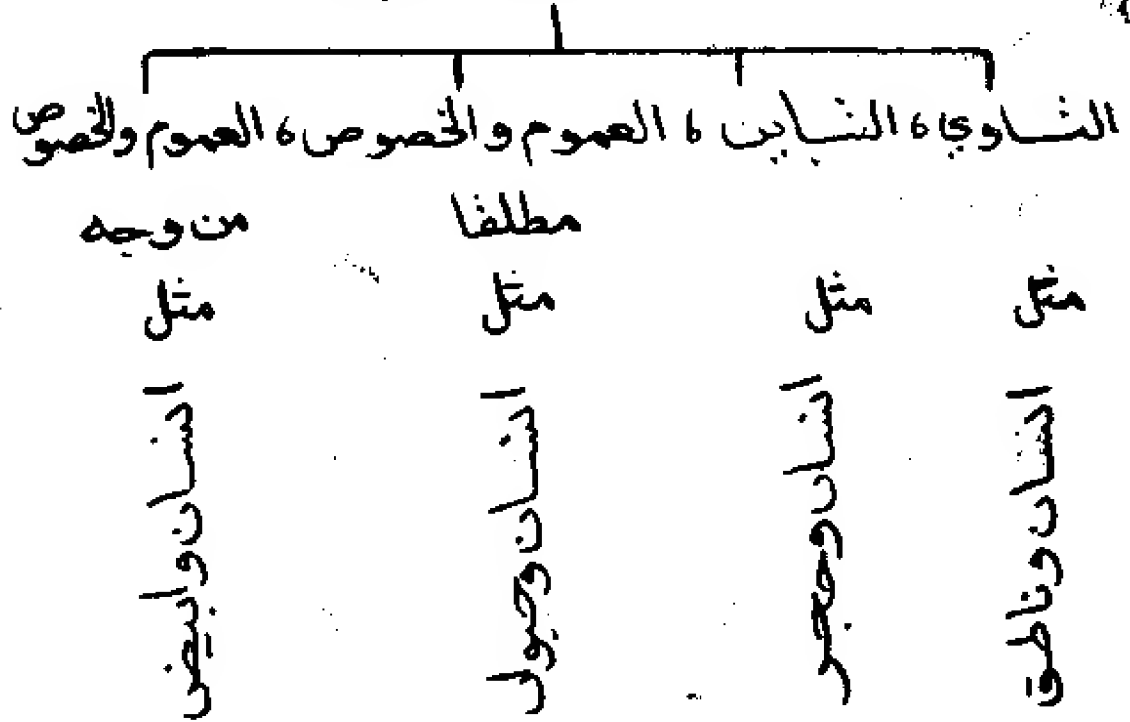 التساوي، التباين، العموم والخصوص، العموم والخصوص
مطلقا
من وجه
مثل
مثل
مثل
مثل
انسان وناطق
انسان وحجر
انسان وحيوان
انسان وابيض